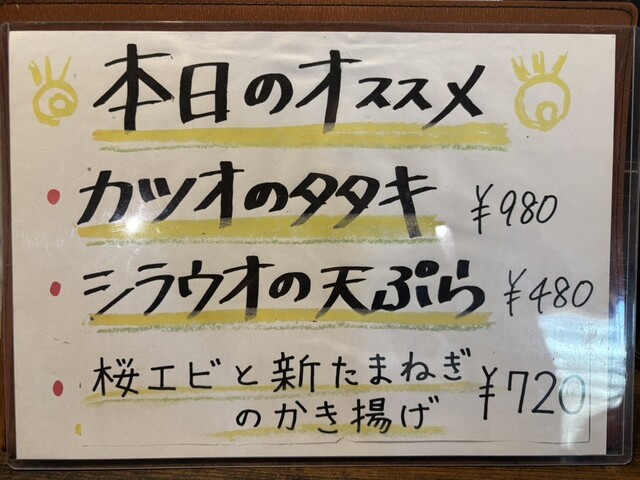 本日のオススメ
カツオのタタキ ¥980
シラウオの天ぷら ¥480
桜エビと新たまねぎ
のかき揚げ ¥720